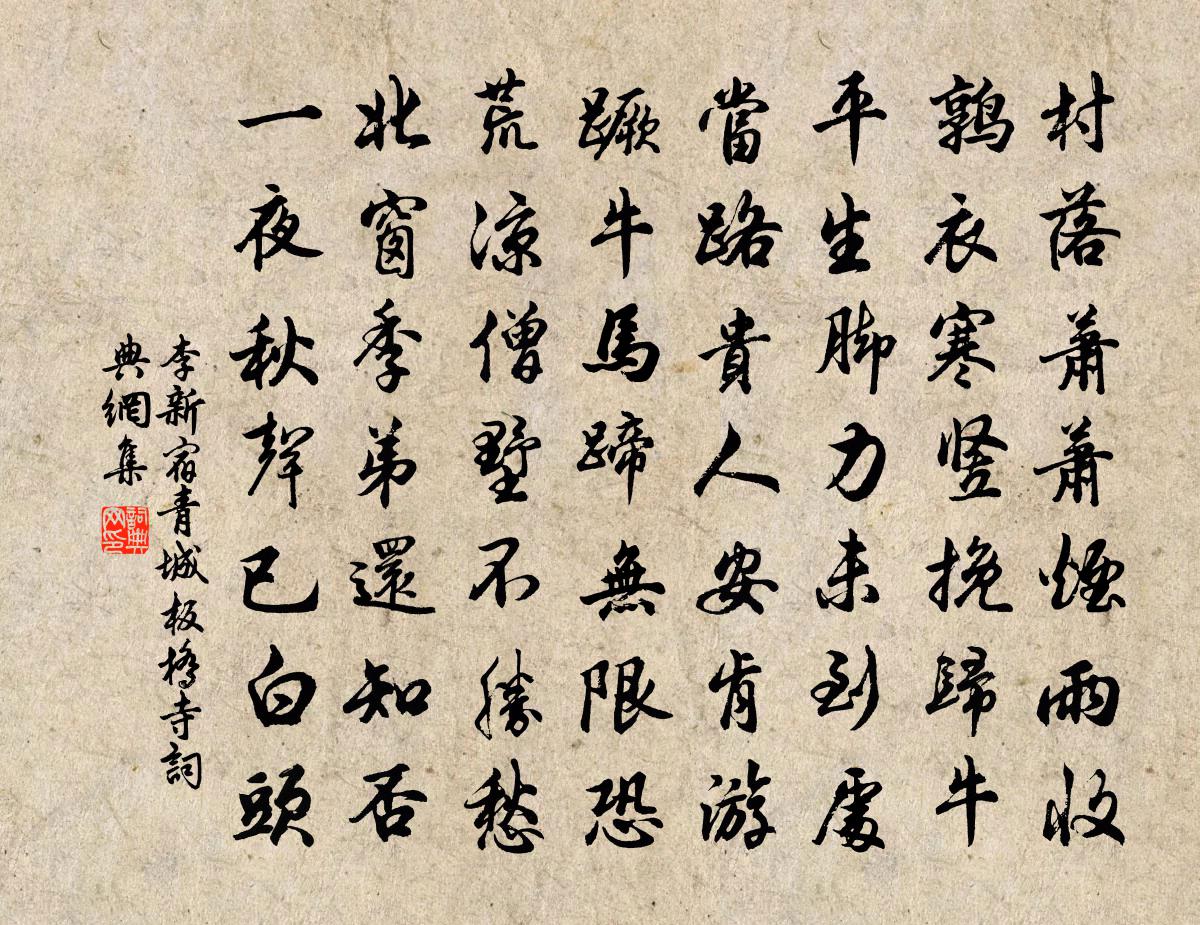 村落蕭蕭煙雨收
鶉衣寒竪挽歸牛
平生脚力未到處
當路貴人安肯游
蹶牛馬蹄無限恐
荒涼僧墅不勝愁
北窗季弟還知否
一夜秋聲已白頭
李新宿青城板橋寺詞
典網集
詞典
网印